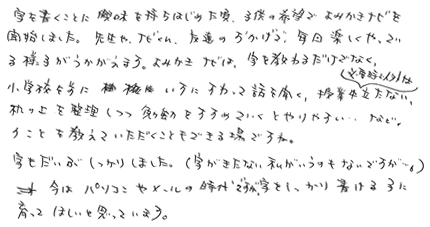 字を書くことに興味を持ちはじめた頃、子供の希望でよみかきナビを
開始しました。先生や、ナビくん、友達のおかげで、毎日楽しくやってい
る様子がうかがえます。よみかきナビは、字を教わるだけでなく、
小学校を前に いすにすわって話を聞く、授業中立たない、
机の上を整理しつつ勉強をすすめていくとやりやすい…など、
うことを教えていただくこともできる場ですね。
字もだいぶしっかりしました。(字がきたない私がいうのもないですが…。)
今はパソコンやメールの時代ですが、字をしっかり書ける子に
育ってほしいと思っています。